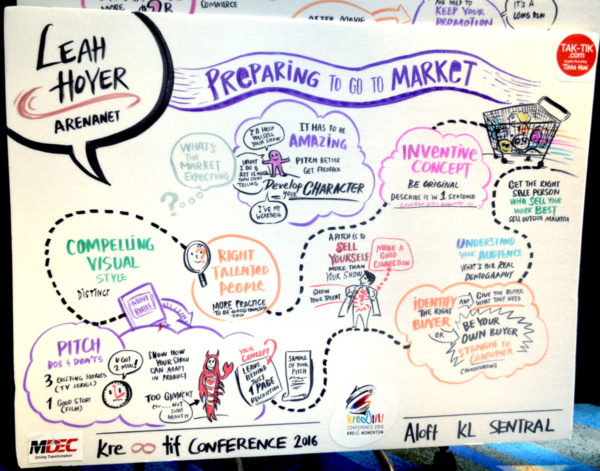 COMMERCE
AFTER MOVIE
YOU NEED TO
KEEP YOUR
PROMOTION
IT'S A
LONG RUN
LEAH
HOYER
ARENANET
TAK-TIK
.com
PREPARING TO GO TO MARKET
WHAT'S
THE
MARKET
EXPECTING
?
I'LL HELP
YOU SELL
YOUR SHOW
WHAT I
DO &
ACT IS MORE
THAN STORY
TELLING
I'VE MY
WEAKNESS
IT HAS TO BE
AMAZING
PITCH BETTER
GET FEEDBACK
Develop YOUR CHARACTER
INVENTIVE
CONCEPT
BE ORIGINAL
DESCRIBE IT IN 1 SENTENCE
GET THE RIGHT
SALE PERSON
WHO SELL YOUR
WORK BEST
SELL OUTSIDE MALAYSIA
COMPELLING
VISUAL
STYLE
DISTINCT
RIGHT
TALENTED
PEOPLE
MORE PRACTICE
TO BE GOOD
A PITCH IS TO
SELL
YOURSELF
MORE THAN
YOUR SHOW
SHOW
YOUR TALENT
MAKE A
GOOD
CONNECTION
UNDERSTAND
YOUR AUDIENCE
WHAT'S YOUR REAL
DEMOGRAPHY
IDENTIFY
THE RIGHT
BUYER
AND
GIVE THE BUYER
WHAT THEY NEED
OR
BE YOUR
OWN BUYER
STRAIGHT TO
CONSUMER
CROWDFUNDING
MINI
BIBLE
PITCH
DOS & DON'TS
3 EXCITING STORIES
(TV SERIES)
1 GOOD STORY
(FILM)
U GOT
2 MIN!
SHOW HOW
YOUR SHOW
CAN ADAPT
IN PRODUCT
TOO GIMMICKY
YOUR
CONCEPT?
LEAVE
BEHIND
JUST
1 PAGE
DESCRIPTION
SAMPLE
OF YOUR
PITCH
MDEC
Driving Transformation
Kre∞tif CONFERENCE 2016
Kre8tif!
CONFERENCE 2016
KRE8TIF MOMENTUM
Aloft KL SENTRAL